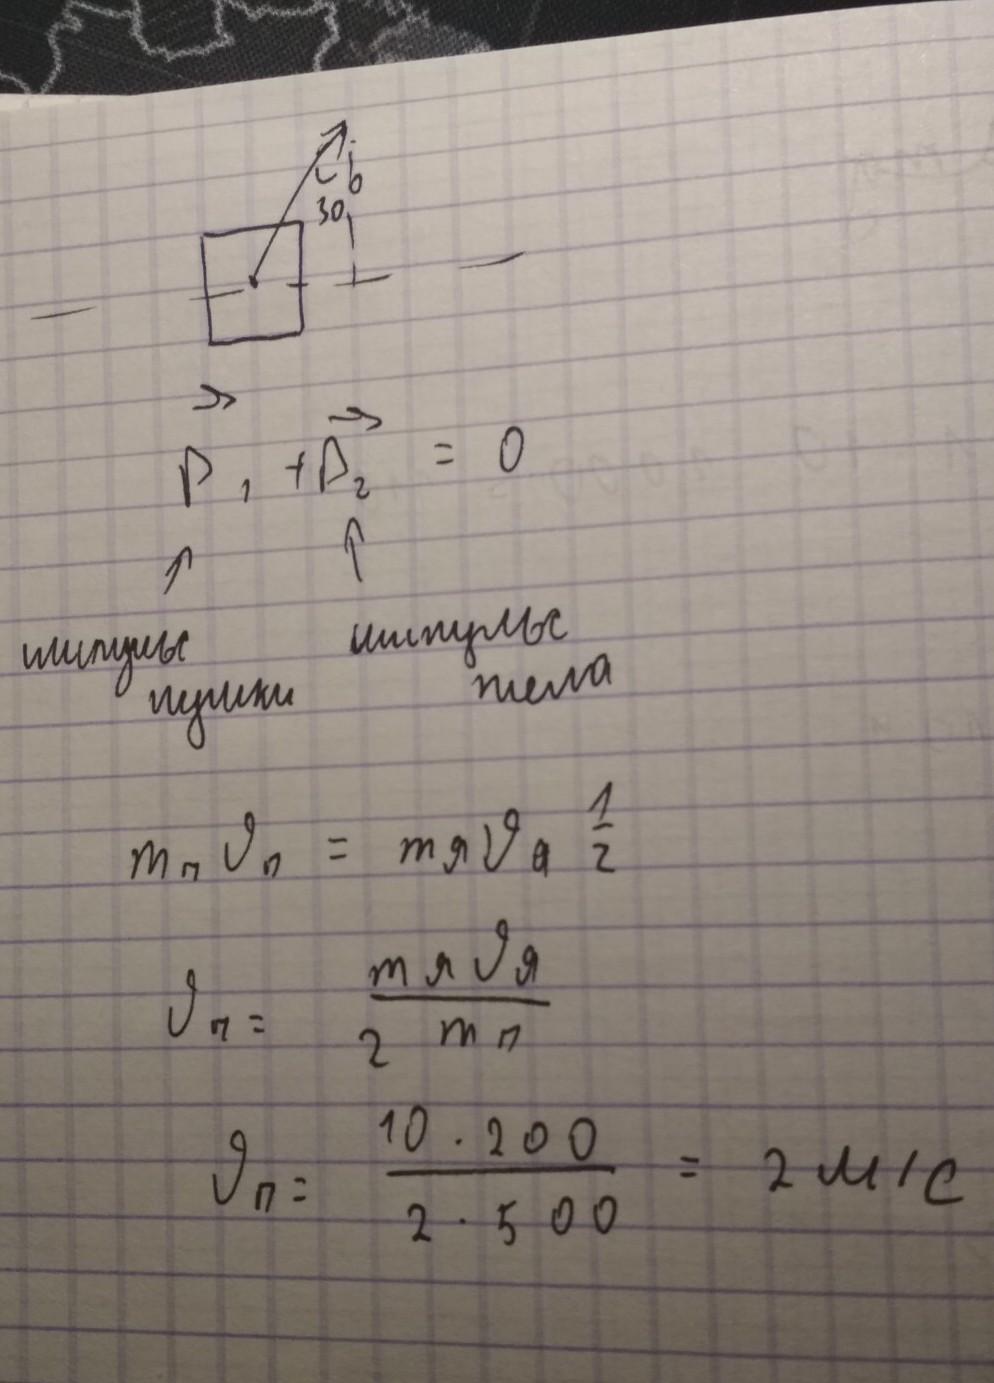 30
P₁ + P₂ = 0
импульс импульс
пушки тела
mп ϑп = mя ϑя 1/2
ϑп = mя ϑя / 2 mп
ϑп = 10 · 200 / 2 · 500 = 2 м/с